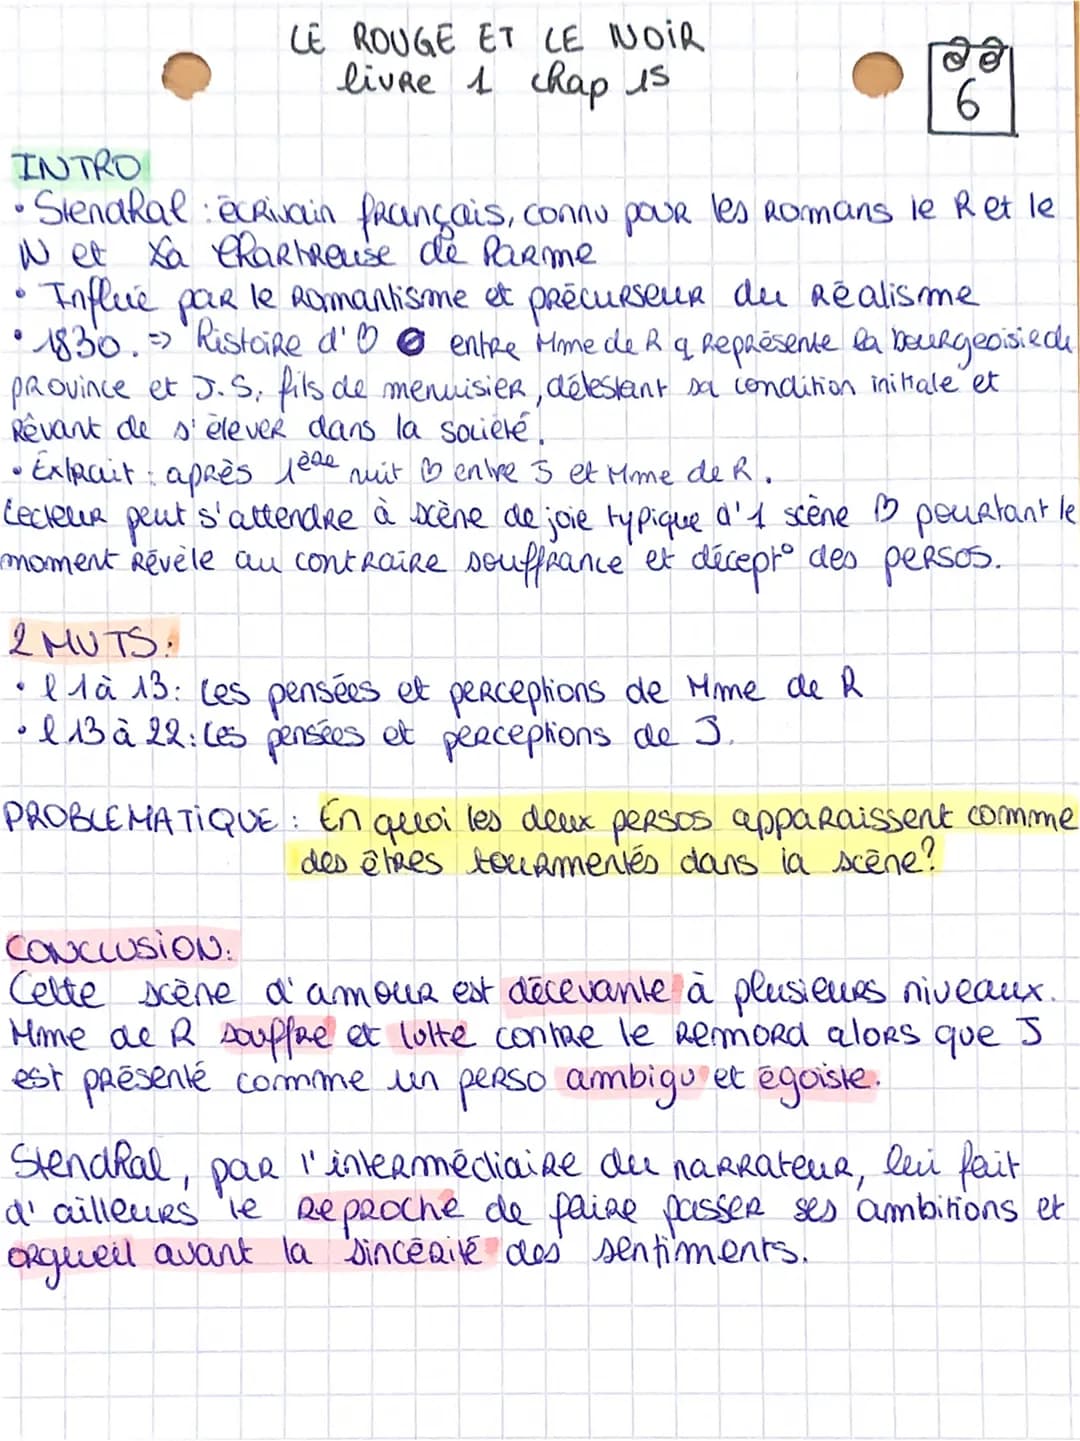 LE ROUGE ET LE NOIR
livre 1 chap 15
6
INTRO
• Stendhal : écrivain français, connu pour les romans le R et le
N et La Chartreuse de Parme
• Influé par le romantisme et précurseur du Réalisme
• 1830. => histoire d'♡ entre Mme de R q représente la bourgeoisie de
province et J.S, fils de menuisier, détestant sa condition initiale et
rêvant de s'élever dans la société.
• Extrait : après 1ère nuit ♡ entre J et Mme de R.
Lecteur peut s'attendre à scène de joie typique d'1 scène ♡ pourtant le
moment révèle au contraire souffrance et décept° des persos.
2 MVTS :
• l 1 à 13 : Les pensées et perceptions de Mme de R
• l 13 à 22 : Les pensées et perceptions de J.
PROBLEMATIQUE : En quoi les deux persos apparaissent comme
des êtres tourmentés dans la scène ?
CONCLUSION :
Cette scène d'amour est décevante à plusieurs niveaux.
Mme de R souffre et lutte contre le remord alors que J
est présenté comme un perso ambigu et égoïste.
Stendhal, par l'intermédiaire du narrateur, lui fait
d'ailleurs le reproche de faire passer ses ambitions et
orgueil avant la sincérité des sentiments.